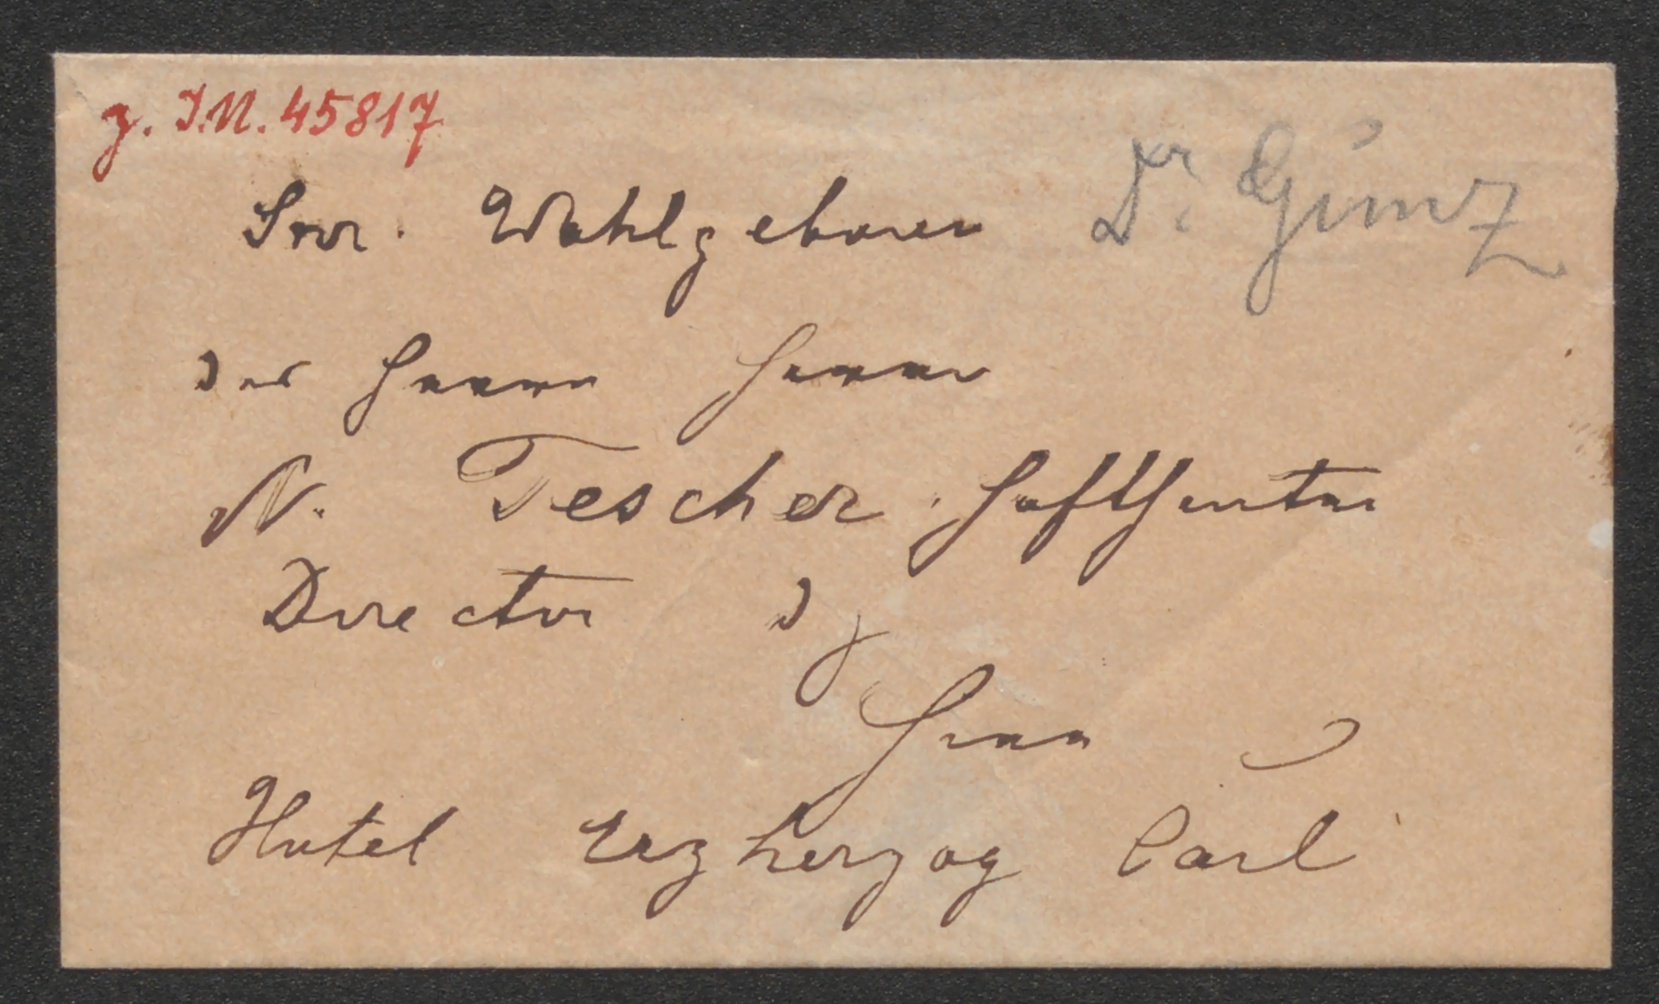 z. I.N. 45817
Dr. Günz
Sr. Wohlgeboren
des Herrn Herrn
N. Tescher Hoftheater
Director
Hotel Erzherzog Carl